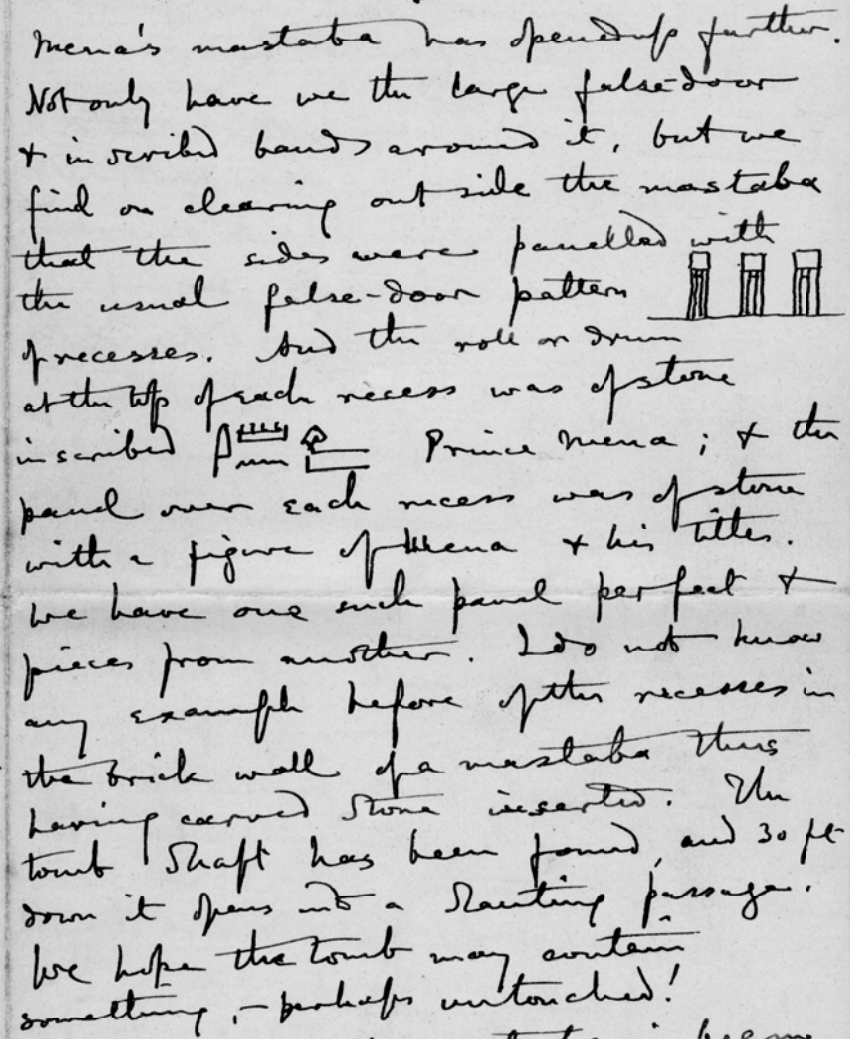 Mena's mastaba has opened up further.
Not only have we the large false-door
& inscribed bands around it, but we
find on clearing outside the mastaba
that the sides were panelled with
the usual false-door pattern
of recesses. And the roll or drum
at the top of each recess was of stone
inscribed Prince Mena ; & the
panel over each recess was of stone
with a figure of Mena & his titles.
We have one such panel perfect &
pieces from another. I do not know
any example before of the recesses in
the brick wall of a mastaba thus
having carved stone inserted. The
tomb shaft has been found, and 30 ft
down it opens into a slanting passage.
We hope the tomb may contain
something, – perhaps untouched!